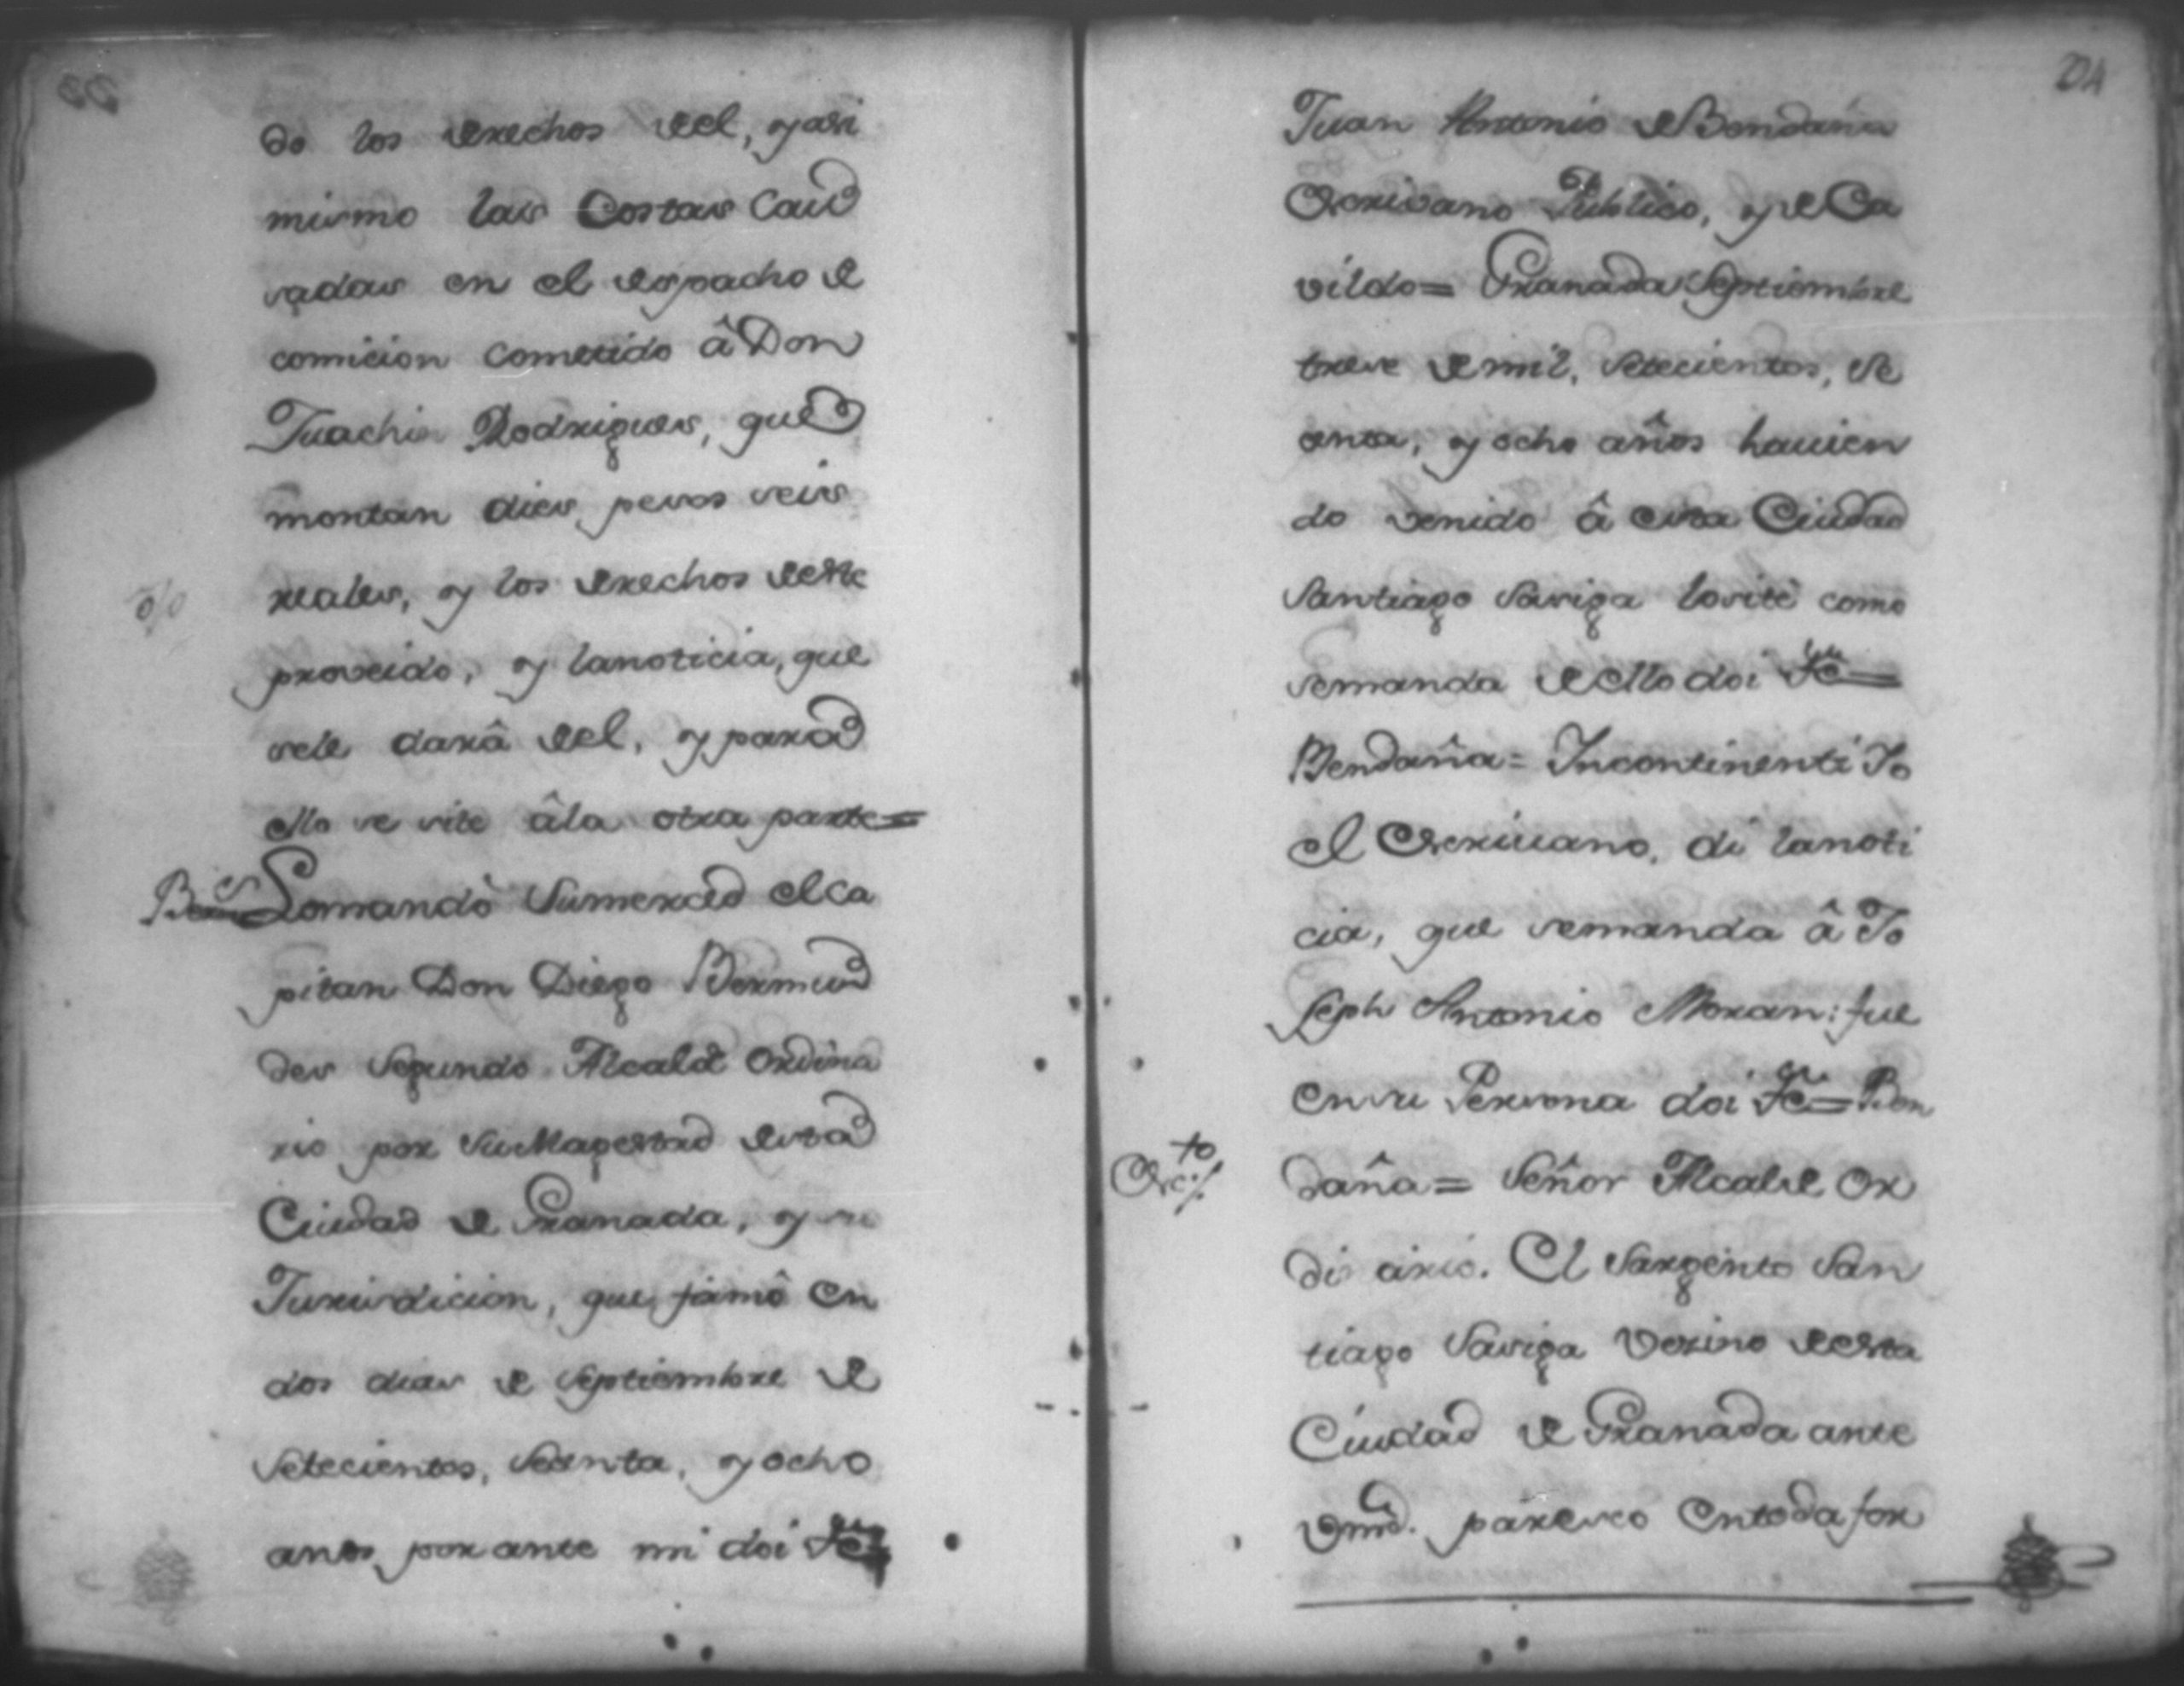 do los derechos del, y asi
mismo las Costas Cau
sadas en el despacho de
comicion cometido â Don
Juachin Rodrigues, que
montan dies pesos seis
reales, y los derechos deste
proveido, y lanoticia, que
sele darâ del, y para
ello se site âla otra parte=
Lomandò Sumerced elCa
pitan Don Diego Bermu
des Segundo Alcalde Ordina
rio por SuMagestad desta
Ciudad de Granada, y su
Jurisdicion, que firmô en
dos dias de Septiembre de
Setecientos, Sesenta, y ocho
años por ante mi doi Feè
24
Juan Antonio deBendaña
Escrivano Publico, y deCa
vildo= Granada Septiembre
trese demil, Setecientos, Se
senta, y ocho años havien
do venido â esta Ciudad
Santiago Sariga lositè como
semanda deello doi Feè=
Bendaña= Incontinenti Yo
el Escriuano, di lanoti
cia, que semanda â Jo
seph Antonio Moran: fue
ensu Persona doi Feè= Ben
Escto
daña= Señor Alcalde Or
dinario. El Sargento San
tiago Sariga Vezino deesta
Ciudad de Granada ante
Vmd. paresco Entoda for